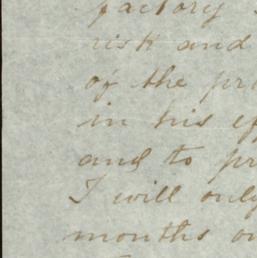 factory
risk and
of the pr
in his ef
and to pr
I will only
months on